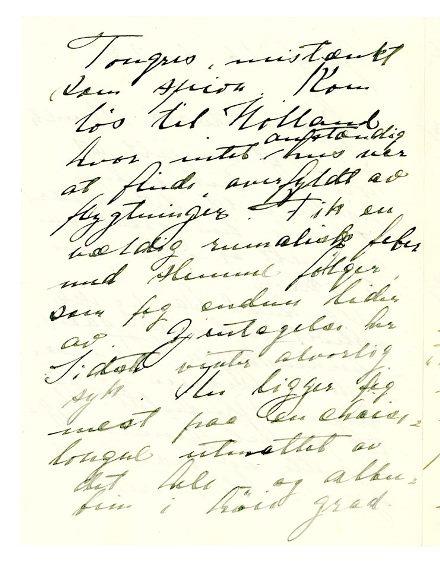 Tongres, mistænkt
som spion. Kom
løs til Holland
hvor intet anstændig hus var
at finde, overfyldt av
flygtninger. Fik en
vældig rumatisk feber
med slemme følger,
som jeg endnu lider
av. Gjentagelse her
Sidste vinter alvorlig
syk. Nu ligger jeg
mest paa en chaise-
longue utmattet av
det hele og albu-
min i høi grad.